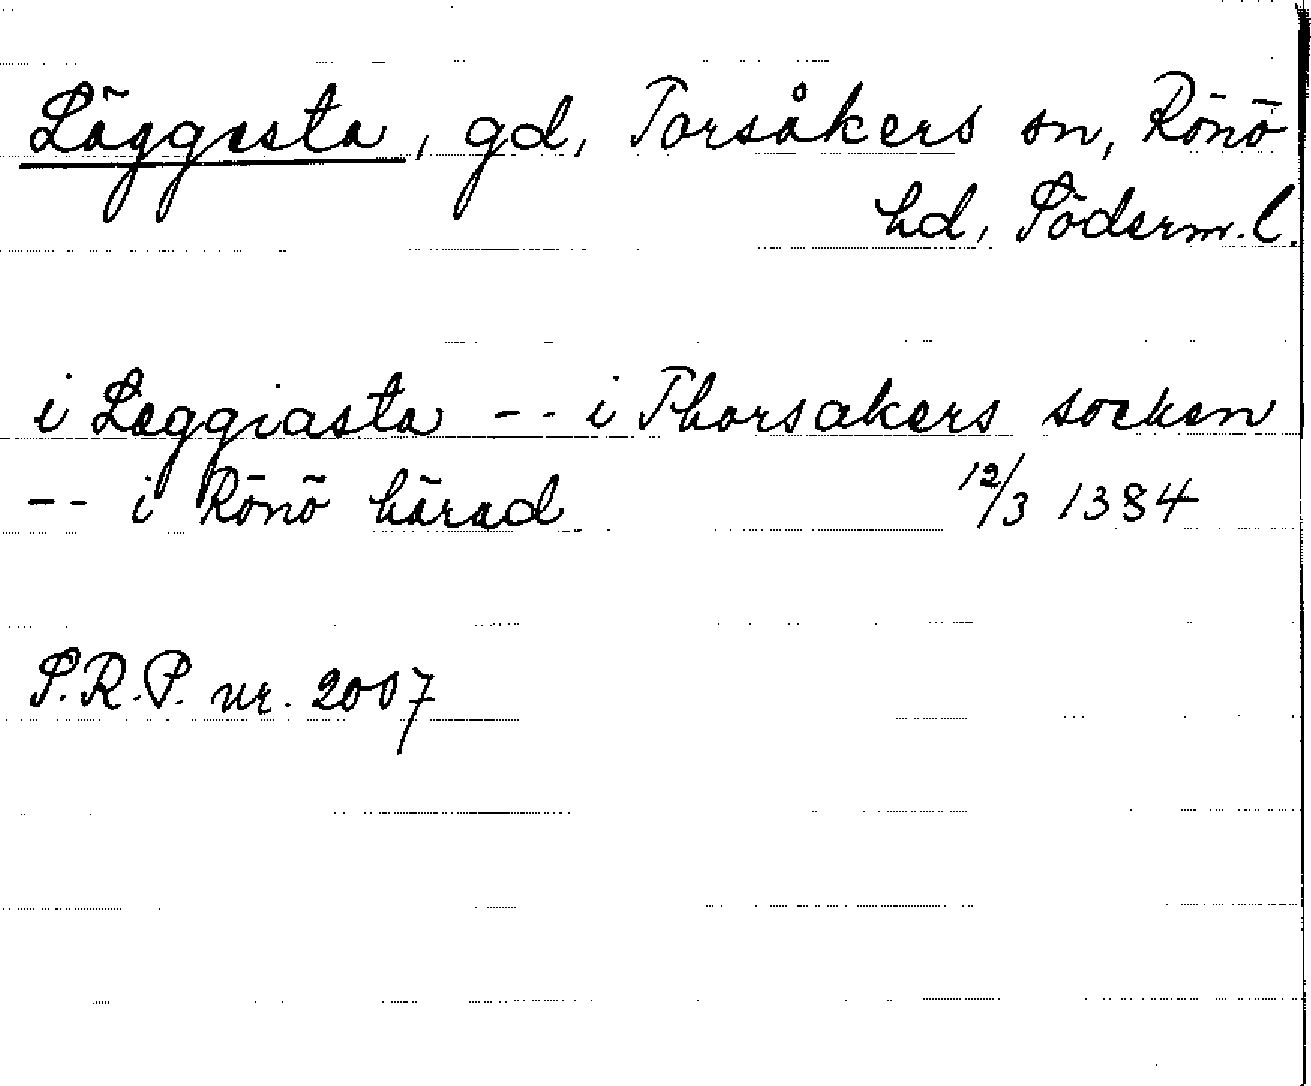 Läggesta, gd, Torsåkers sn, Rönö
hd, Söderm. l.
i Leggiasta -- i Thorsakers socken
-- i Rönö härad 12/3 1384
S.R.P. nr. 2007